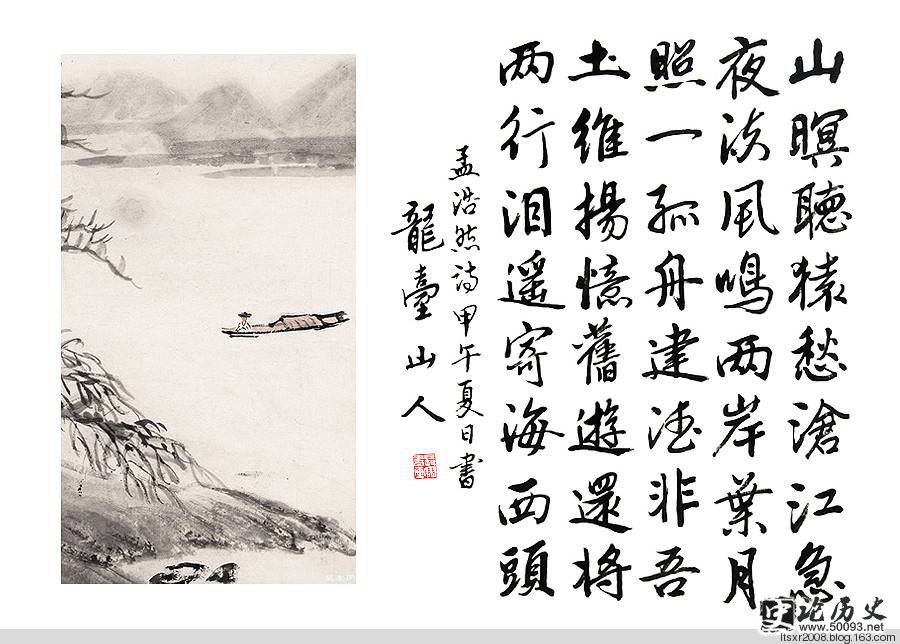 山暝聽猿愁滄江急
夜流風鳴两岸葉月
照一孤舟建德非吾
土維揚憶舊遊還将
两行泪遥寄海西頭
孟浩然诗甲午夏日書
龍臺山人
论历史
www.50093.net
ltsxr2008.blog.163.com